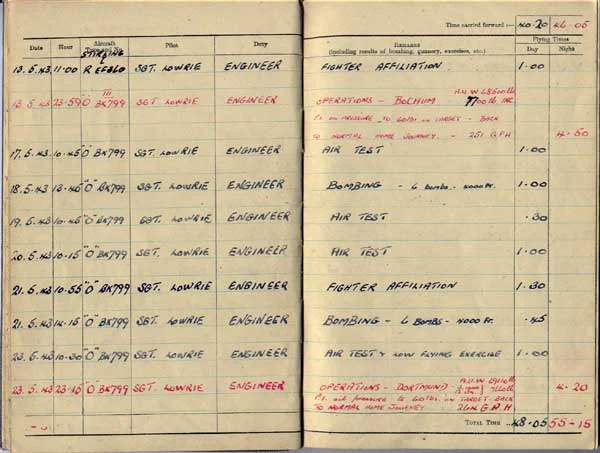 Time carried forward :— 40.20 46.05
Date Hour Aircraft Type and No. Pilot Duty REMARKS (including results of bombing, gunnery, exercises, etc.) Flying Times Day Night
STIRLING
13.5.43 11.00 R EF360 SGT. LOWRIE ENGINEER FIGHTER AFFILIATION 1.00
13.5.43 23.59 "O" III BK799 SGT LOWRIE ENGINEER OPERATIONS - BOCHUM A.U.W 68600lb 7700lb INC.
TO 60lbs on TARGET - BACK
TO NORMAL HOME JOURNEY. - 251 GPH 4.50
17.5.43 10.45 "O" BK799 SGT. LOWRIE ENGINEER AIR TEST 1.00
18.5.43 "O" BK799 SGT. LOWRIE ENGINEER BOMBING - 6 bombs - 4000 Ft. 1.00
19.5.43 10.45 "O" BK799 SGT. LOWRIE ENGINEER AIR TEST .30
20.5.43 10.15 "O" BK799 SGT. LOWRIE ENGINEER AIR TEST 1.00
21.5.43 10.55 "O" BK799 SGT. LOWRIE ENGINEER FIGHTER AFFILIATION 1.30
21.5.43 14.15 "O" BK799 SGT. LOWRIE ENGINEER BOMBING - 6 BOMBS - 4000 Ft. .45
23.5.43 10.30 "O" BK799 SGT. LOWRIE ENGINEER AIR TEST & LOW FLYING EXERCISE 1.00
23.5.43 23.15 "O" BK799 SGT. LOWRIE ENGINEER OPERATIONS - DORTMUND A.U.W 4.20
pressure to 60lbs. on TARGET - BACK
TO NORMAL HOME JOURNEY G.P.H
TOTAL TIME 48.05 55-15